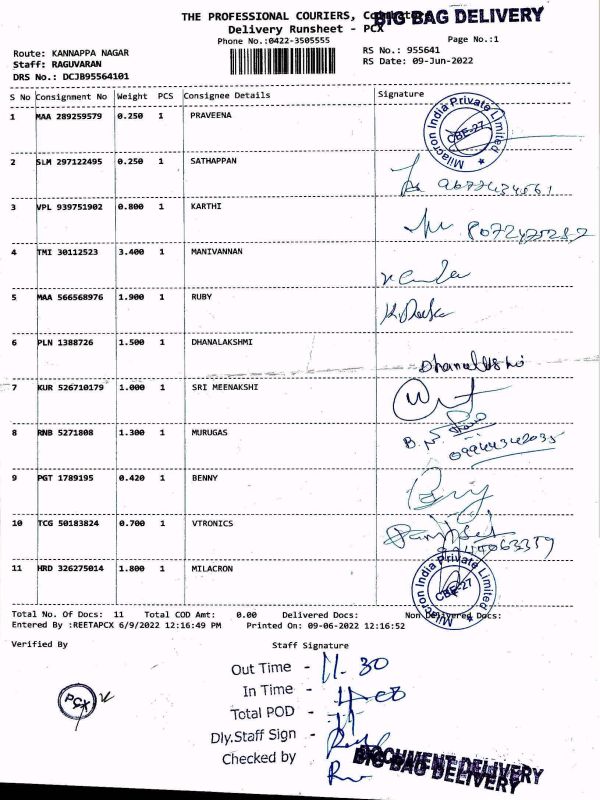 THE PROFESSIONAL COURIERS, Coimbatore
BIG BAG DELIVERY
Delivery Runsheet - PCX
Phone No.:0422-3505555
Page No.:1
Route: KANNAPPA NAGAR
RS No.: 955641
Staff: RAGUVARAN
RS Date: 09-Jun-2022
DRS No.: DCJB95564101
S No Consignment No Weight PCS Consignee Details Signature
1 MAA 289259579 0.250 1 PRAVEENA
Milacron India Private Limited
CBE-27
2 SLM 297122495 0.250 1 SATHAPPAN
3 VPL 939751902 0.800 1 KARTHI
4 TMI 30112523 3.400 1 MANIVANNAN
5 MAA 566568976 1.900 1 RUBY
6 PLN 1388726 1.500 1 DHANALAKSHMI
7 KUR 526710179 1.000 1 SRI MEENAKSHI
8 RNB 5271808 1.300 1 MURUGAS
9 PGT 1789195 0.420 1 BENNY
10 TCG 50183824 0.700 1 VTRONICS
11 HRD 326275014 1.800 1 MILACRON
Milacron India Private Limited
CBE-27
Total No. Of Docs: 11 Total COD Amt: 0.00 Delivered Docs: Non Delivered Docs:
Entered By :REETAPCX 6/9/2022 12:16:49 PM Printed On: 09-06-2022 12:16:52
Verified By Staff Signature
Out Time - 11.30
In Time -
Total POD - 11
PCX
Dly.Staff Sign -
Checked by
DOCUMENT DELIVERY
BIG BAG DELIVERY